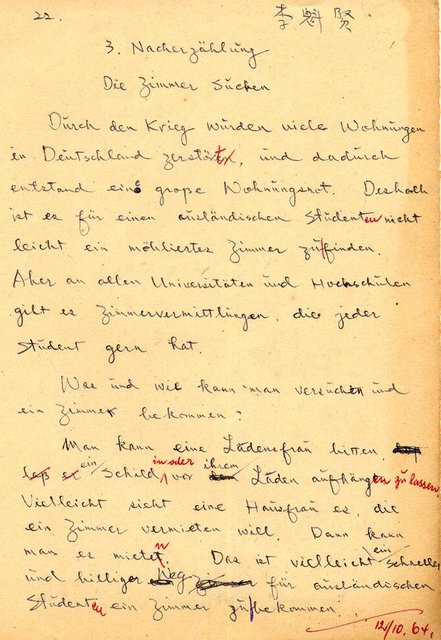 22.
李魁賢
3. Nacherzählung
Die Zimmer Suchen
Durch den Krieg wurden viele Wohnungen
in Deutschland zerstört, und dadurch
entstand eine große Wohnungsnot. Deshalb
ist es für einen ausländischen Studenten nicht
leicht ein möbliertes Zimmer zu finden.
Aber an allen Universitäten und Hochschulen
gibt es Zimmervermittlungen, die jeder
Student gern hat.
Was und wie kann man versuchen und
ein Zimmer bekommen?
Man kann eine Ladensfrau bitten,
ein Schild in oder vor ihrem Laden aufhängen zu lassen.
Vielleicht sieht eine Hausfrau es, die
ein Zimmer vermieten will. Dann kann
man es mieten. Das ist vielleicht ein schneller
und billiger Weg für ausländischen
Studenten ein Zimmer zu bekommen.
12/10. 64